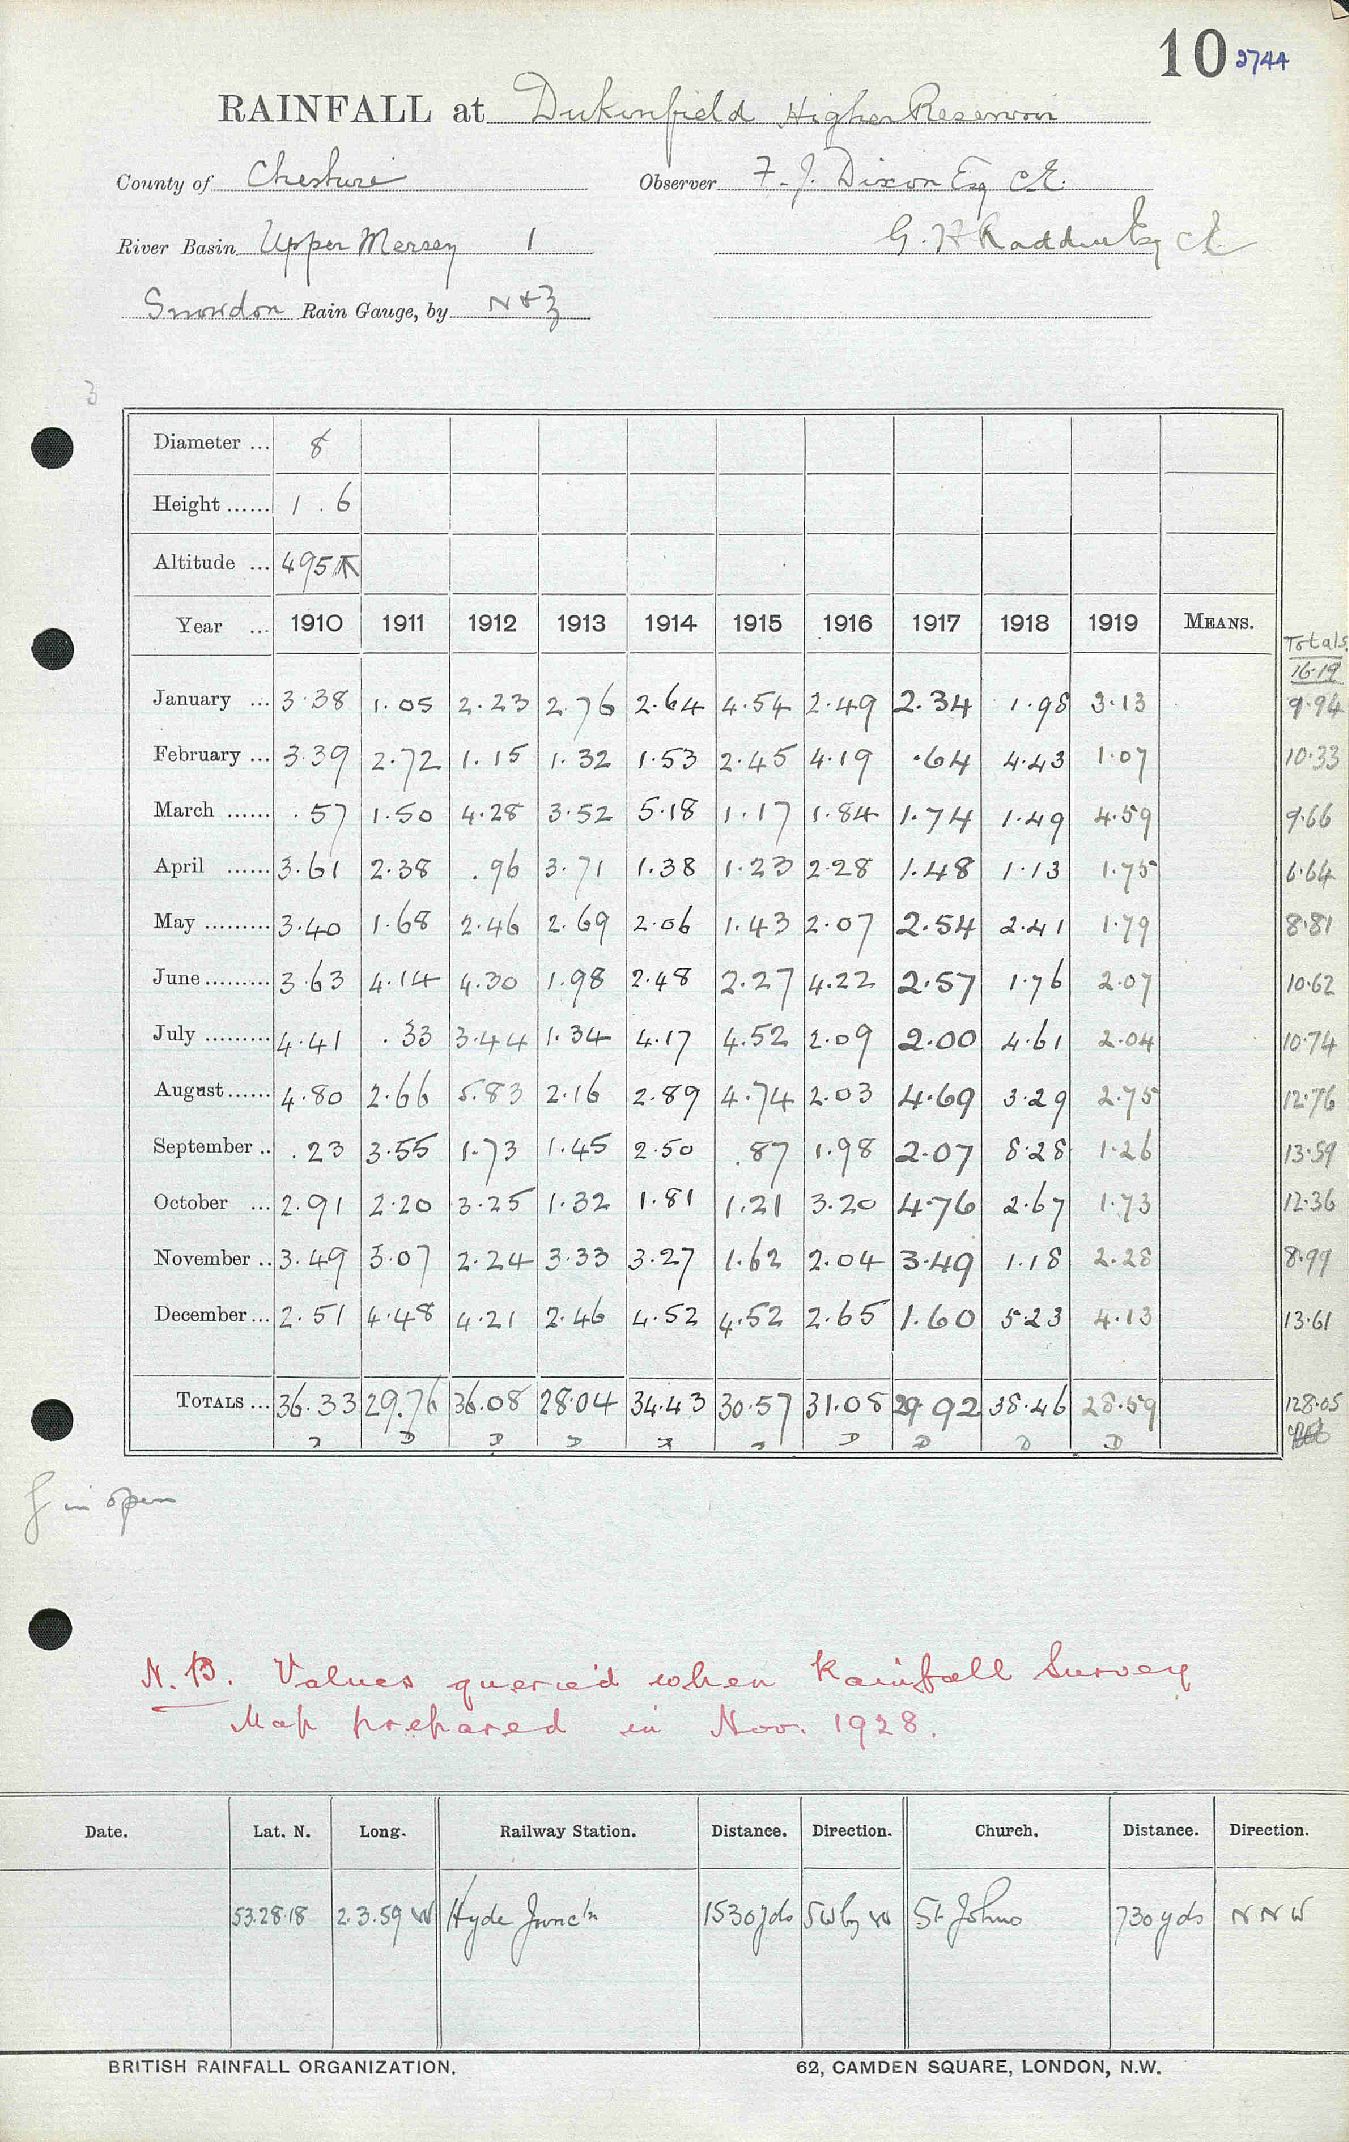 10 2744
RAINFALL at Dukinfield Higher Reservoir
County of Cheshire Observer F. J. Dixon Esq C.E.
River Basin Upper Mersey 1 G. H. Esq CE
Snowdon Rain Gauge, by N & Z
3
Diameter ... 8
Height ...... 1 . 6
Altitude ... 495
Year ... 1910 1911 1912 1913 1914 1915 1916 1917 1918 1919 MEANS. Totals 16-19
January ... 3.38 1.05 2.23 2.76 2.64 4.54 2.49 2.34 1.98 3.13 9.94
February ... 3.39 2.72 1.15 1.32 1.53 2.45 4.19 .64 4.43 1.07 10.33
March ...... .57 1.50 4.28 3.52 5.18 1.17 1.84 1.74 1.49 4.59 9.66
April ...... 3.61 2.38 .96 3.71 1.38 1.23 2.28 1.48 1.13 1.75 6.64
May ......... 3.40 1.68 2.46 2.69 2.06 1.43 2.07 2.54 2.41 1.79 8.81
June ......... 3.63 4.14 4.30 1.98 2.48 2.27 4.22 2.57 1.76 2.07 10.62
July ......... 4.41 .33 3.44 1.34 4.17 4.52 2.09 2.00 4.61 2.04 10.74
August...... 4.80 2.66 5.83 2.16 2.89 4.74 2.03 4.69 3.29 2.75 12.76
September .. .23 3.55 1.73 1.45 2.50 .87 1.98 2.07 8.28 1.26 13.59
October ... 2.91 2.20 3.25 1.32 1.81 1.21 3.20 4.76 2.67 1.73 12.36
November .. 3.49 3.07 2.24 3.33 3.27 1.62 2.04 3.49 1.18 2.28 8.99
December ... 2.51 4.48 4.21 2.46 4.52 4.52 2.65 1.60 5.23 4.13 13.61
TOTALS ... 36.33 29.76 36.08 28.04 34.43 30.57 31.08 29.92 38.46 28.59 128.05
in open
N.B. Values queried when Rainfall Survey
Map prepared in Nov. 1928.
Date. Lat. N. Long. Railway Station. Distance. Direction. Church. Distance. Direction.
53.28.18 2.3.59 W Hyde Junctn 1530 yds SW by W St Johns 730 yds NNW
BRITISH RAINFALL ORGANIZATION. 62, CAMDEN SQUARE, LONDON, N.W.